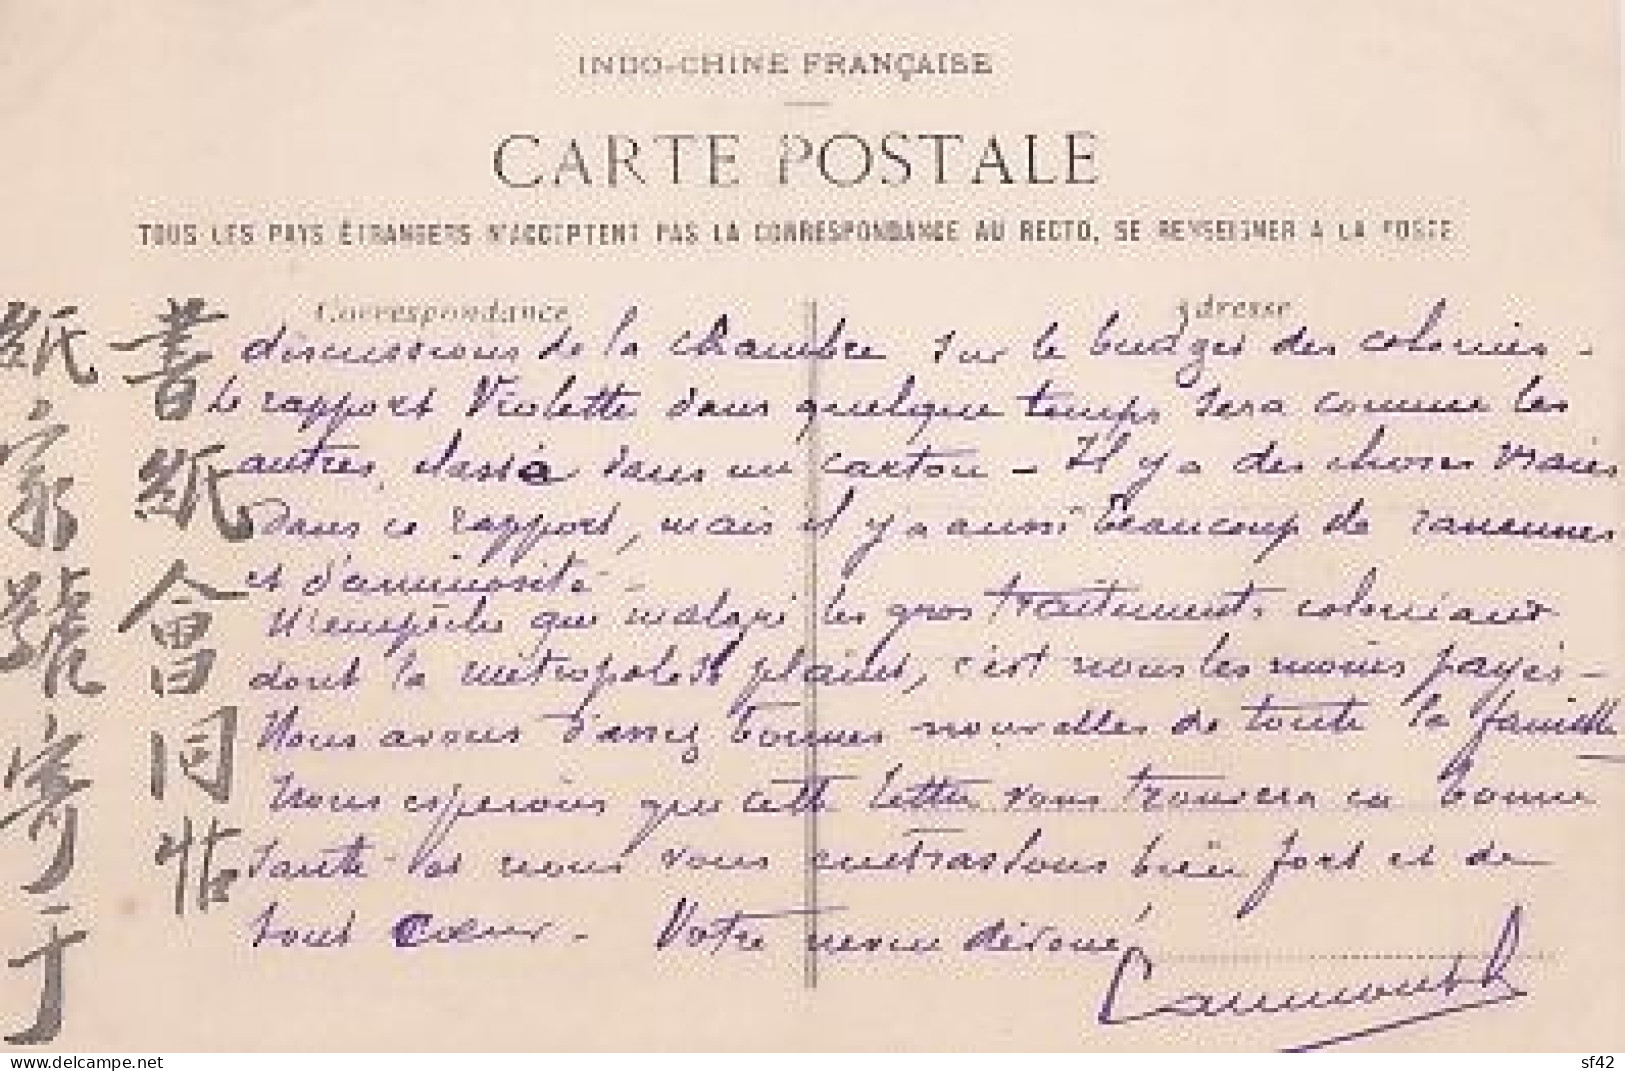 INDO-CHINE FRANÇAISE
CARTE POSTALE
TOUS LES PAYS ÉTRANGERS N'ACCEPTENT PAS LA CORRESPONDANCE AU RECTO, SE RENSEIGNER A LA POSTE
Correspondance
Adresse
discussions de la Chambre sur le budget des colonies -
Le rapport Violette dans quelque temps sera comme les
autres, classé dans un carton - Il y a des choses vraies
Dans ce rapport, mais il y a aussi beaucoup de rancunes
et d'animosité -
N'empêche que malgré les gros traitements coloniaux
dont la métropole se plaint, c'est nous les moins payés -
Nous avons d'assez bonnes nouvelles de toute la famille
Nous espérons que cette lettre vous trouvera en bonne
santé et nous vous embrassons bien fort et de
tout cœur - Votre neveu dévoué
書紙會同帖
紙家號寄于
delcampe.net
sf42